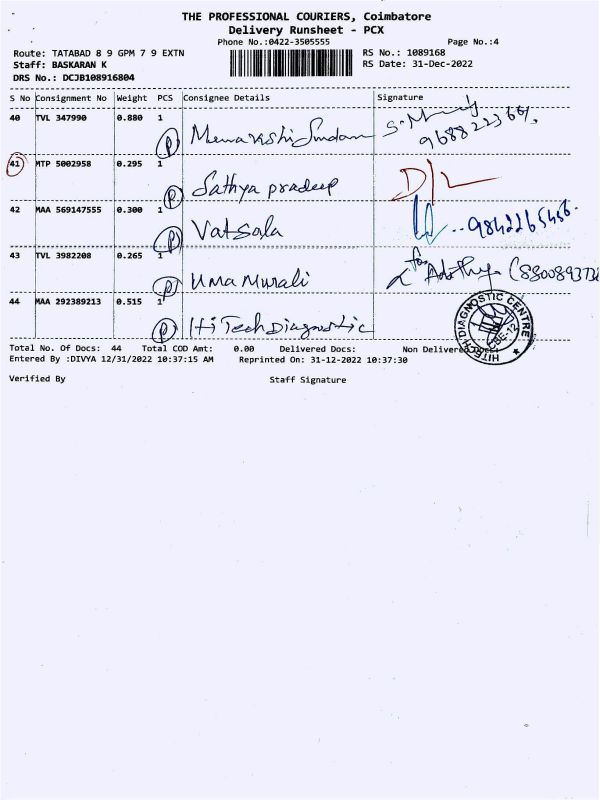 THE PROFESSIONAL COURIERS, Coimbatore
Delivery Runsheet - PCX
Phone No.:0422-3505555 Page No.:4
Route: TATABAD 8 9 GPM 7 9 EXTN RS No.: 1089168
Staff: BASKARAN K RS Date: 31-Dec-2022
DRS No.: DCJB108916804
S No Consignment No Weight PCS Consignee Details Signature
40 TVL 347990 0.880 1 P
41 MTP 5002958 0.295 1 P Sathya pradeep D/L
42 MAA 569147555 0.300 1 P Vatsala
43 TVL 3982208 0.265 1 P Uma Murali for
44 MAA 292389213 0.515 1 P Hi Tech Diagnostic
HITECH DIAGNOSTIC CENTRE
CBE-12
Total No. Of Docs: 44 Total COD Amt: 0.00 Delivered Docs: Non Delivered
Entered By :DIVYA 12/31/2022 10:37:15 AM Reprinted On: 31-12-2022 10:37:30
Verified By Staff Signature